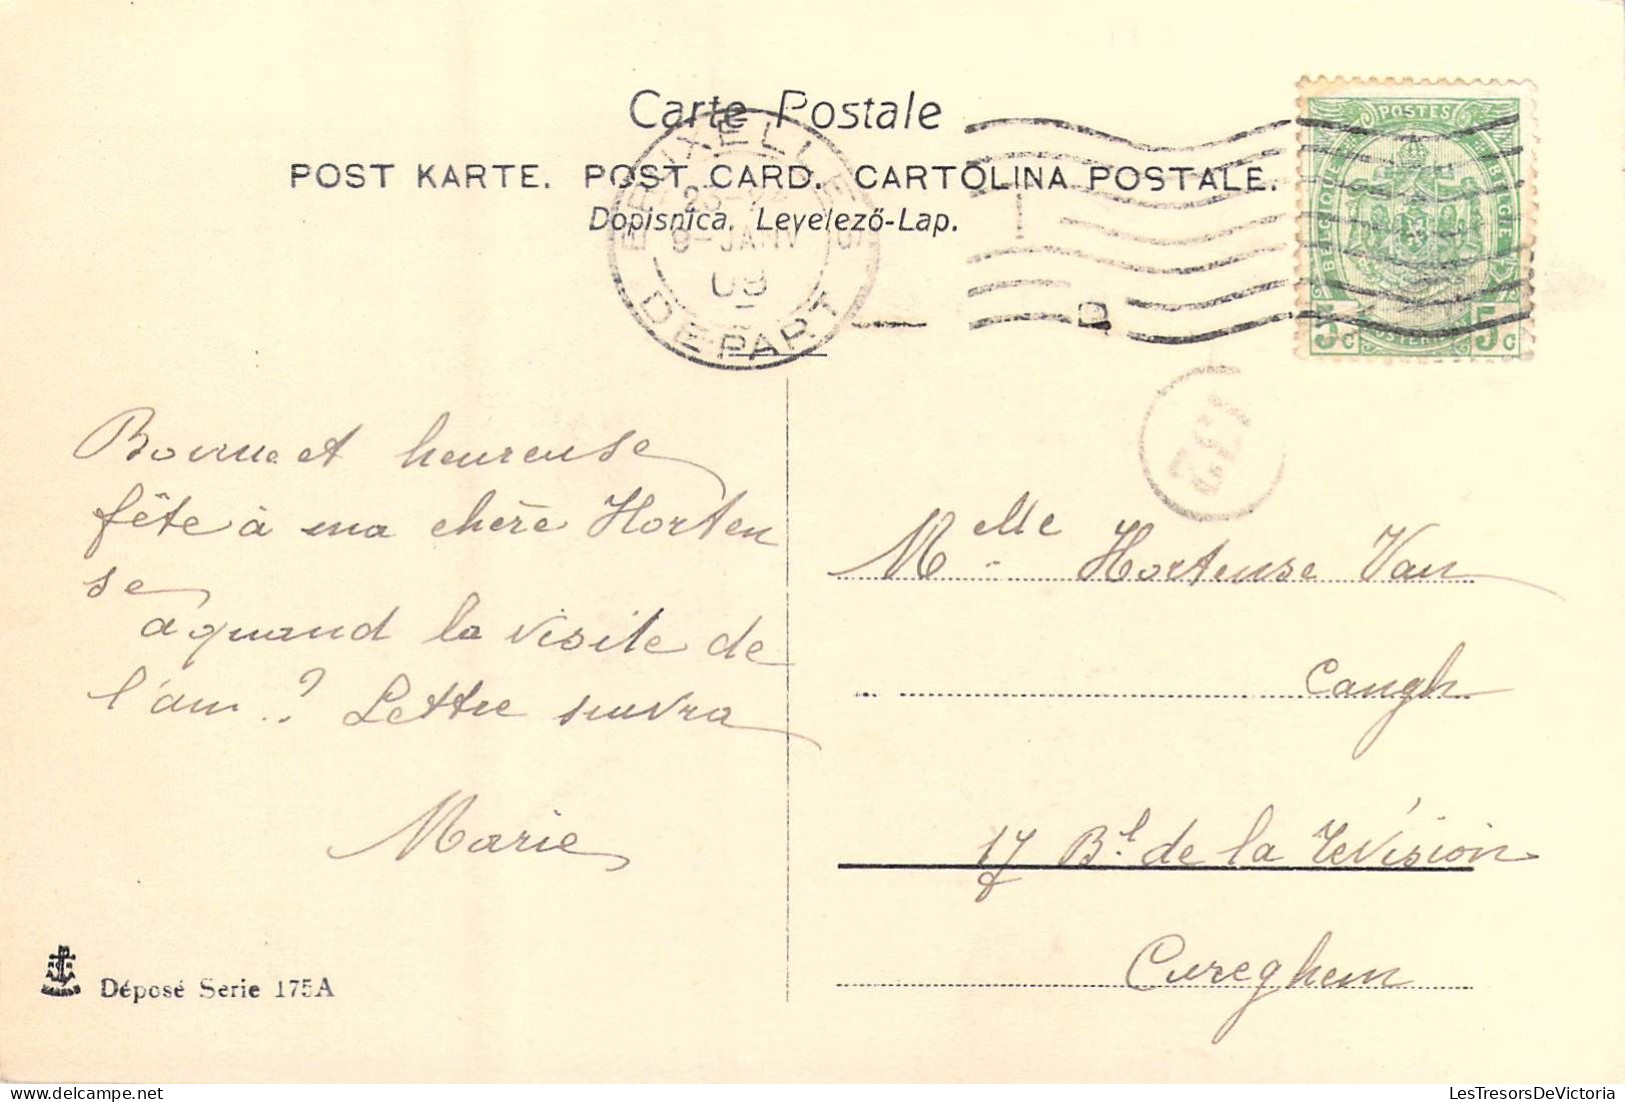 Carte Postale
POST KARTE. POST CARD. CARTOLINA POSTALE.
Dopisnica. Levelező-Lap.
BRUXELLES
9-JANV
08
DEPART
POSTES
BELGIQUE
BELGIE
5c 5c
D
132
Bonne et heureuse
fête à ma chère Horten
se
a quand la visite de
l'am.? Lettre suivra
Marie
Melle Hortense Van
Caugh
17 Bd. de la révision
Cureghem
Déposé Serie 175A
LesTresorsDeVictoria
https://www.delcampe.net
LesTresorsDeVictoria